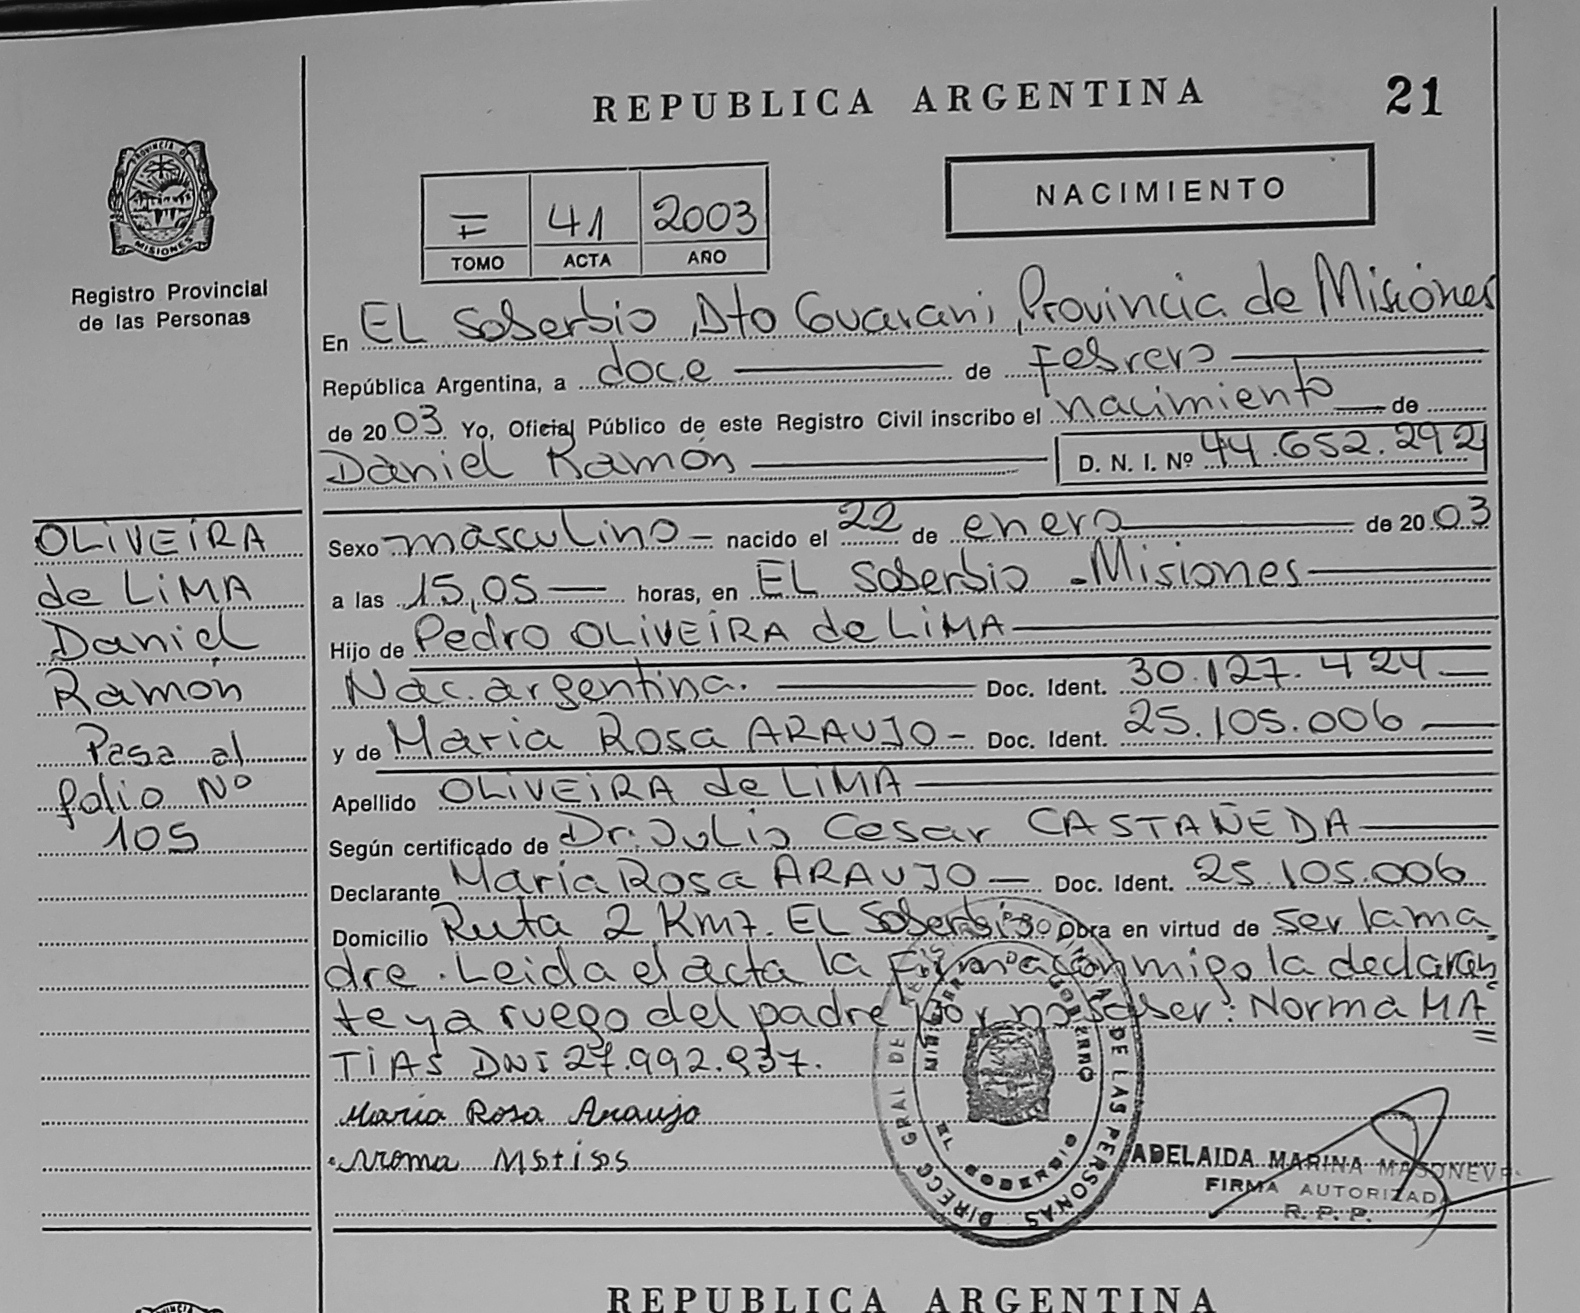 REPUBLICA ARGENTINA
21
PROVINCIA DE
MISIONES
Registro Provincial
de las Personas
F 41 2003
TOMO ACTA AÑO
NACIMIENTO
En EL Soberbio, Dto Guarani, Provincia de Misiones
República Argentina, a doce de Febrero
de 2003 Yo, Oficial Público de este Registro Civil inscribo el nacimiento de
Daniel Ramón D. N. I. Nº 44.652.292
OLIVEIRA
de LIMA
Daniel
Ramón
Pasa al
folio Nº
105
Sexo masculino nacido el 22 de enero de 2003
a las 15,05 horas, en EL Soberbio - Misiones
Hijo de Pedro OLIVEIRA de LIMA
Nac. argentina. Doc. Ident. 30.127.424
y de Maria Rosa ARAUJO - Doc. Ident. 25.105.006
Apellido OLIVEIRA de LIMA
Según certificado de Dr. Julio Cesar CASTAÑEDA
Declarante Maria Rosa ARAUJO Doc. Ident. 25.105.006
Domicilio Ruta 2 Km7. EL Soberbio Obra en virtud de ser la ma
dre. Leida el acta la Firman con migo la declaran
te y a ruego del padre por no saber: Norma MA
TIAS DNI 27.992.937.
Maria Rosa Araujo
Norma Matias
DIRECC GRAL DE LAS PERSONAS
EL SOBERBIO
ADELAIDA MARINA
FIRMA AUTORIZADA
R. P. P.
REPUBLICA ARGENTINA